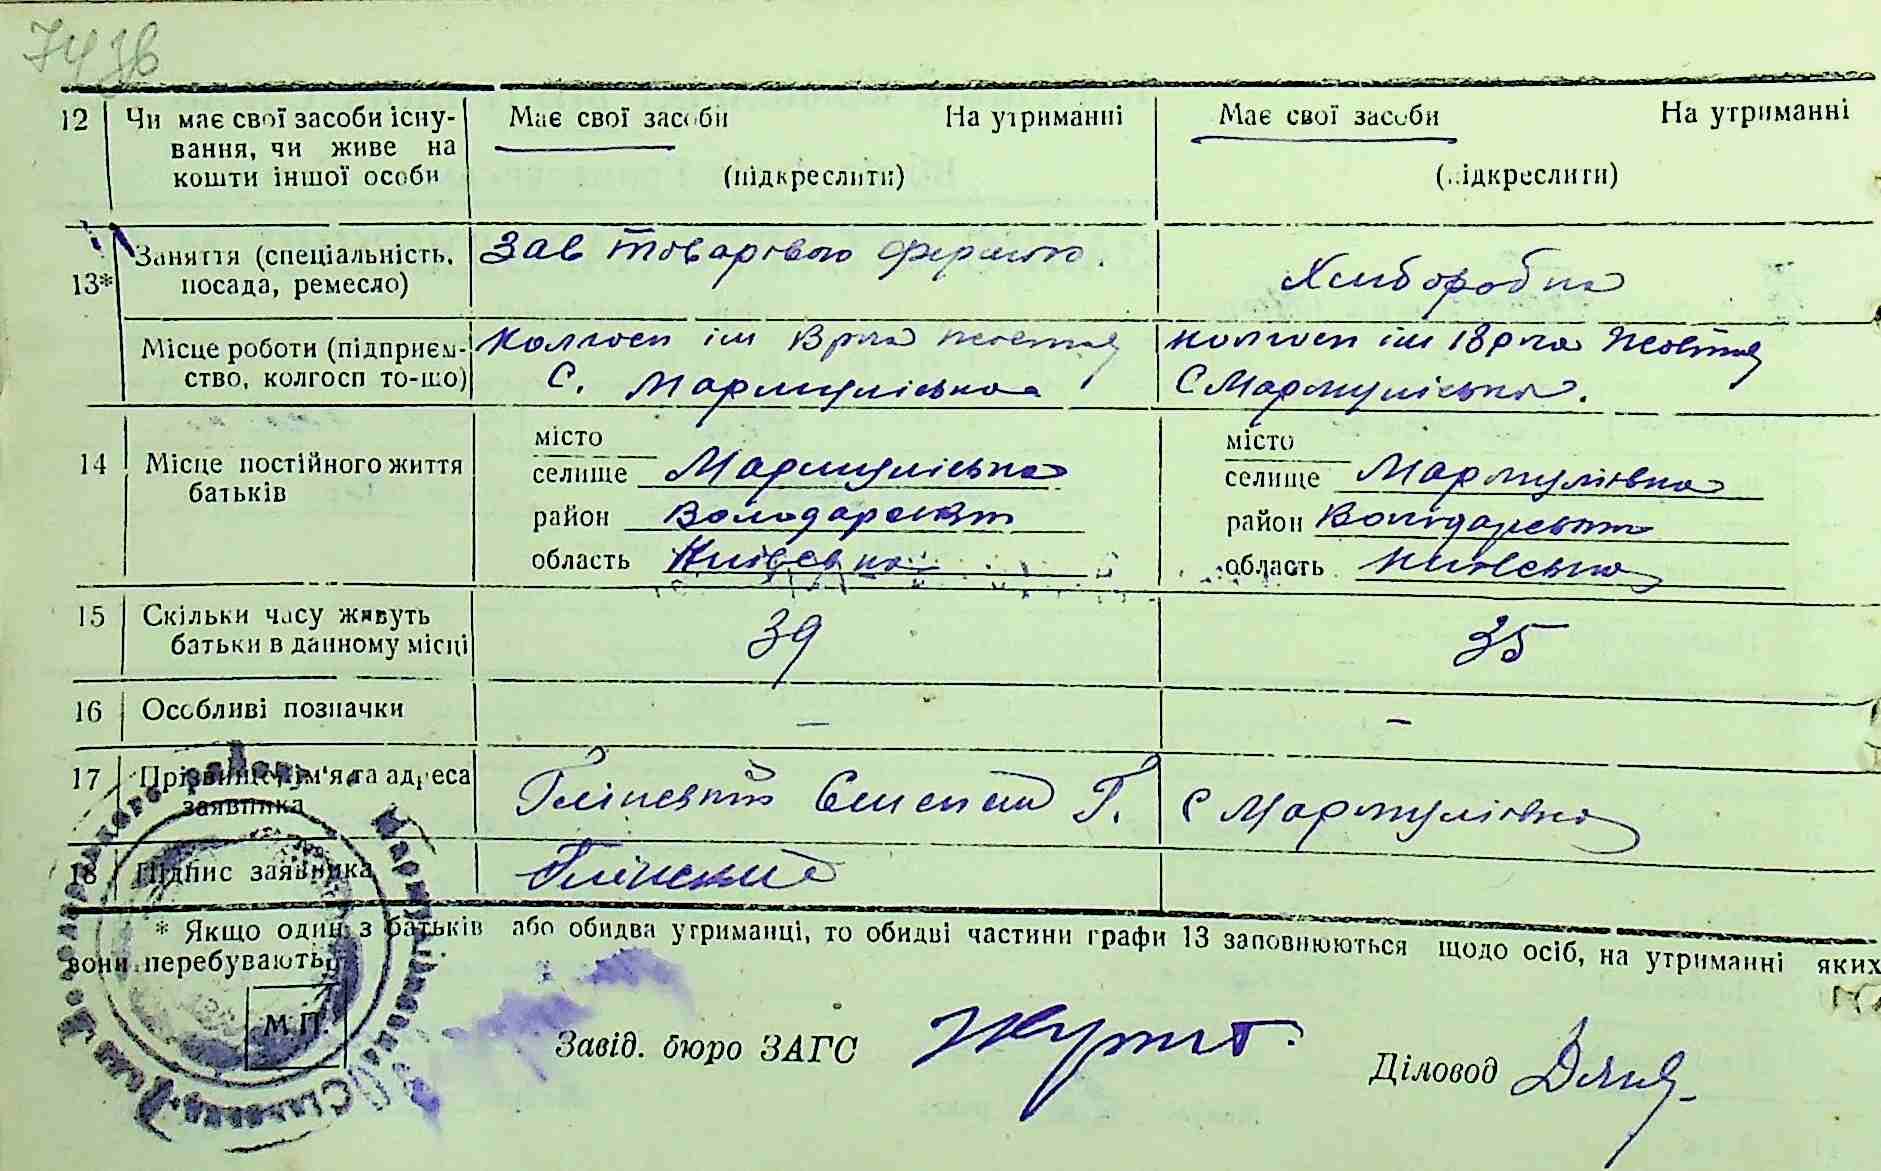 12 Чи має свої засоби існу- Має свої засоби На утриманні Має свої засоби На утриманні
вання, чи живе на
кошти іншої особи (підкреслити) (підкреслити)
13* Заняття (спеціальність, Зав товаровою фермою. Хліборобка
посада, ремесло)
Місце роботи (підприєм- Колгосп ім рча жовтня колгосп ім 18 рча Жовтня
ство, колгосп то-що) С. Мармулівка С Мармулівка.
місто місто
14 Місце постійного життя селище Мармулівка селище Мармулівка
батьків район Володарський район Володарський
область Київська область Київська
15 Скільки часу живуть 39 35
батьки в данному місці
16 Особливі позначки — –
17 Прізвище, ім'я та адреса Глінський Г. С Мармулівка
заявника
18 Підпис заявника Глінский
* Якщо один з батьків або обидва утриманці, то обидві частини графи 13 заповнюються щодо осіб, на утриманні яких
вони перебувають.
М.П.
Завід. бюро ЗАГС
Діловод